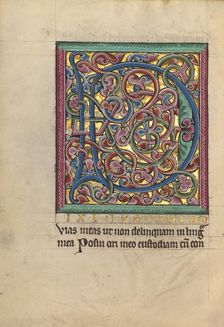 D
IXI CUSTODIAM
vias meas ut non delinquam in ling
mea Posui ori meo custodiam cū con